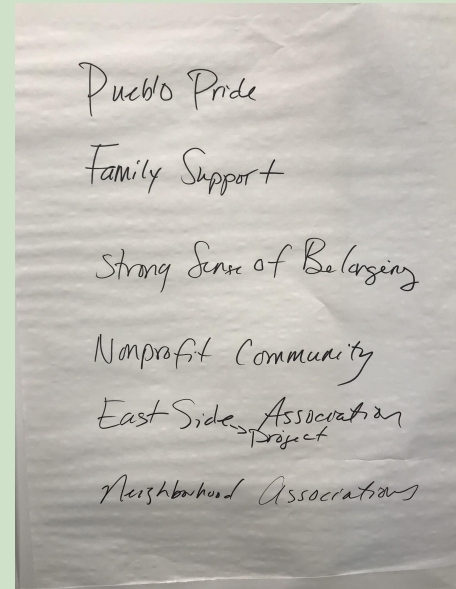 Pueblo Pride
Family Support
Strong Sense of Belonging
Nonprofit Community
East Side Association
Project
Neighborhood Associations